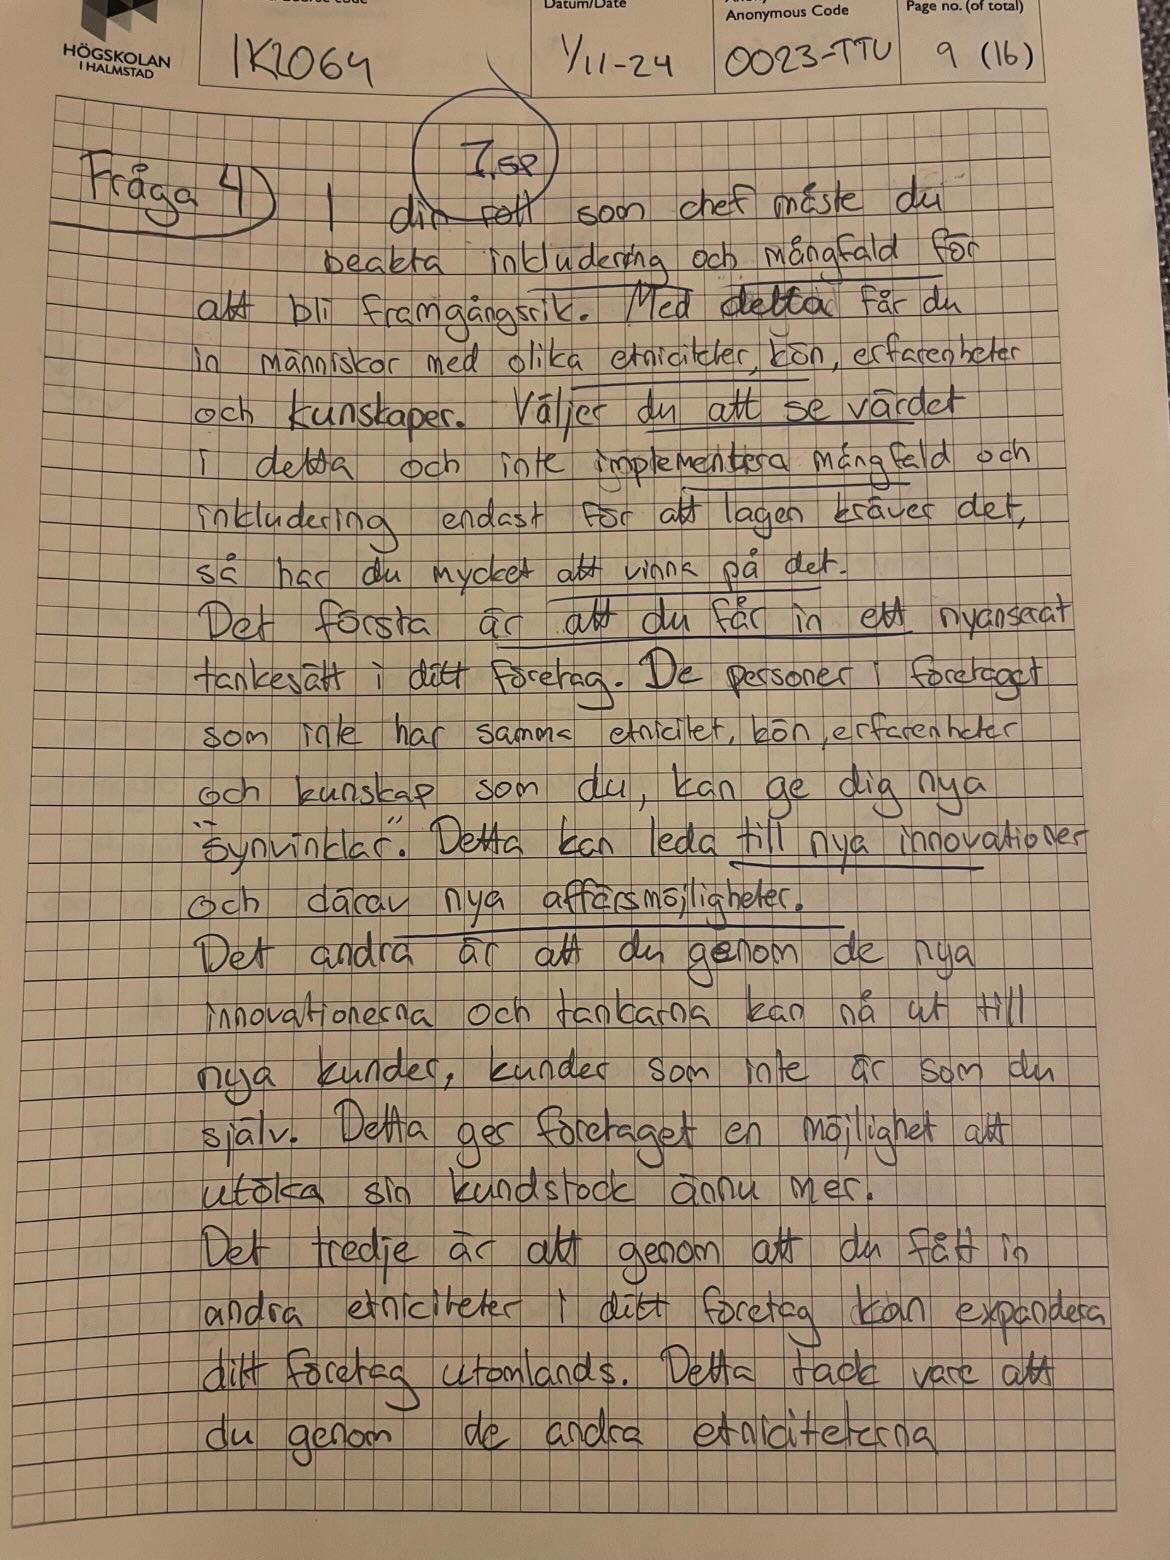 Datum/Date
Anonymous Code
Page no. (of total)
HÖGSKOLAN
I HALMSTAD
IK2064
1/11-24
0023-TTU
9 (16)
7,5p
Fråga 4) I din roll som chef måste du
beakta inkludering och mångfald för
att bli framgångsrik. Med detta får du
in människor med olika etniciteter, kön, erfarenheter
och kunskaper. Väljer du att se värdet
i detta och inte implementera mångfald och
inkludering endast för att lagen kräver det,
så har du mycket att vinna på det.
Det första är att du får in ett nyanserat
tankesätt i ditt företag. De personer i företaget
som inte har samma etnicitet, kön, erfarenheter
och kunskap som du, kan ge dig nya
"synvinklar". Detta kan leda till nya innovationer
och därav nya affärsmöjligheter.
Det andra är att du genom de nya
innovationerna och tankarna kan nå ut till
nya kunder, kunder som inte är som du
själv. Detta ger företaget en möjlighet att
utöka sin kundstock ännu mer.
Det tredje är att genom att du fått in
andra etniciteter i ditt företag kan expandera
ditt företag utomlands. Detta tack vare att
du genom de andra etniciteterna